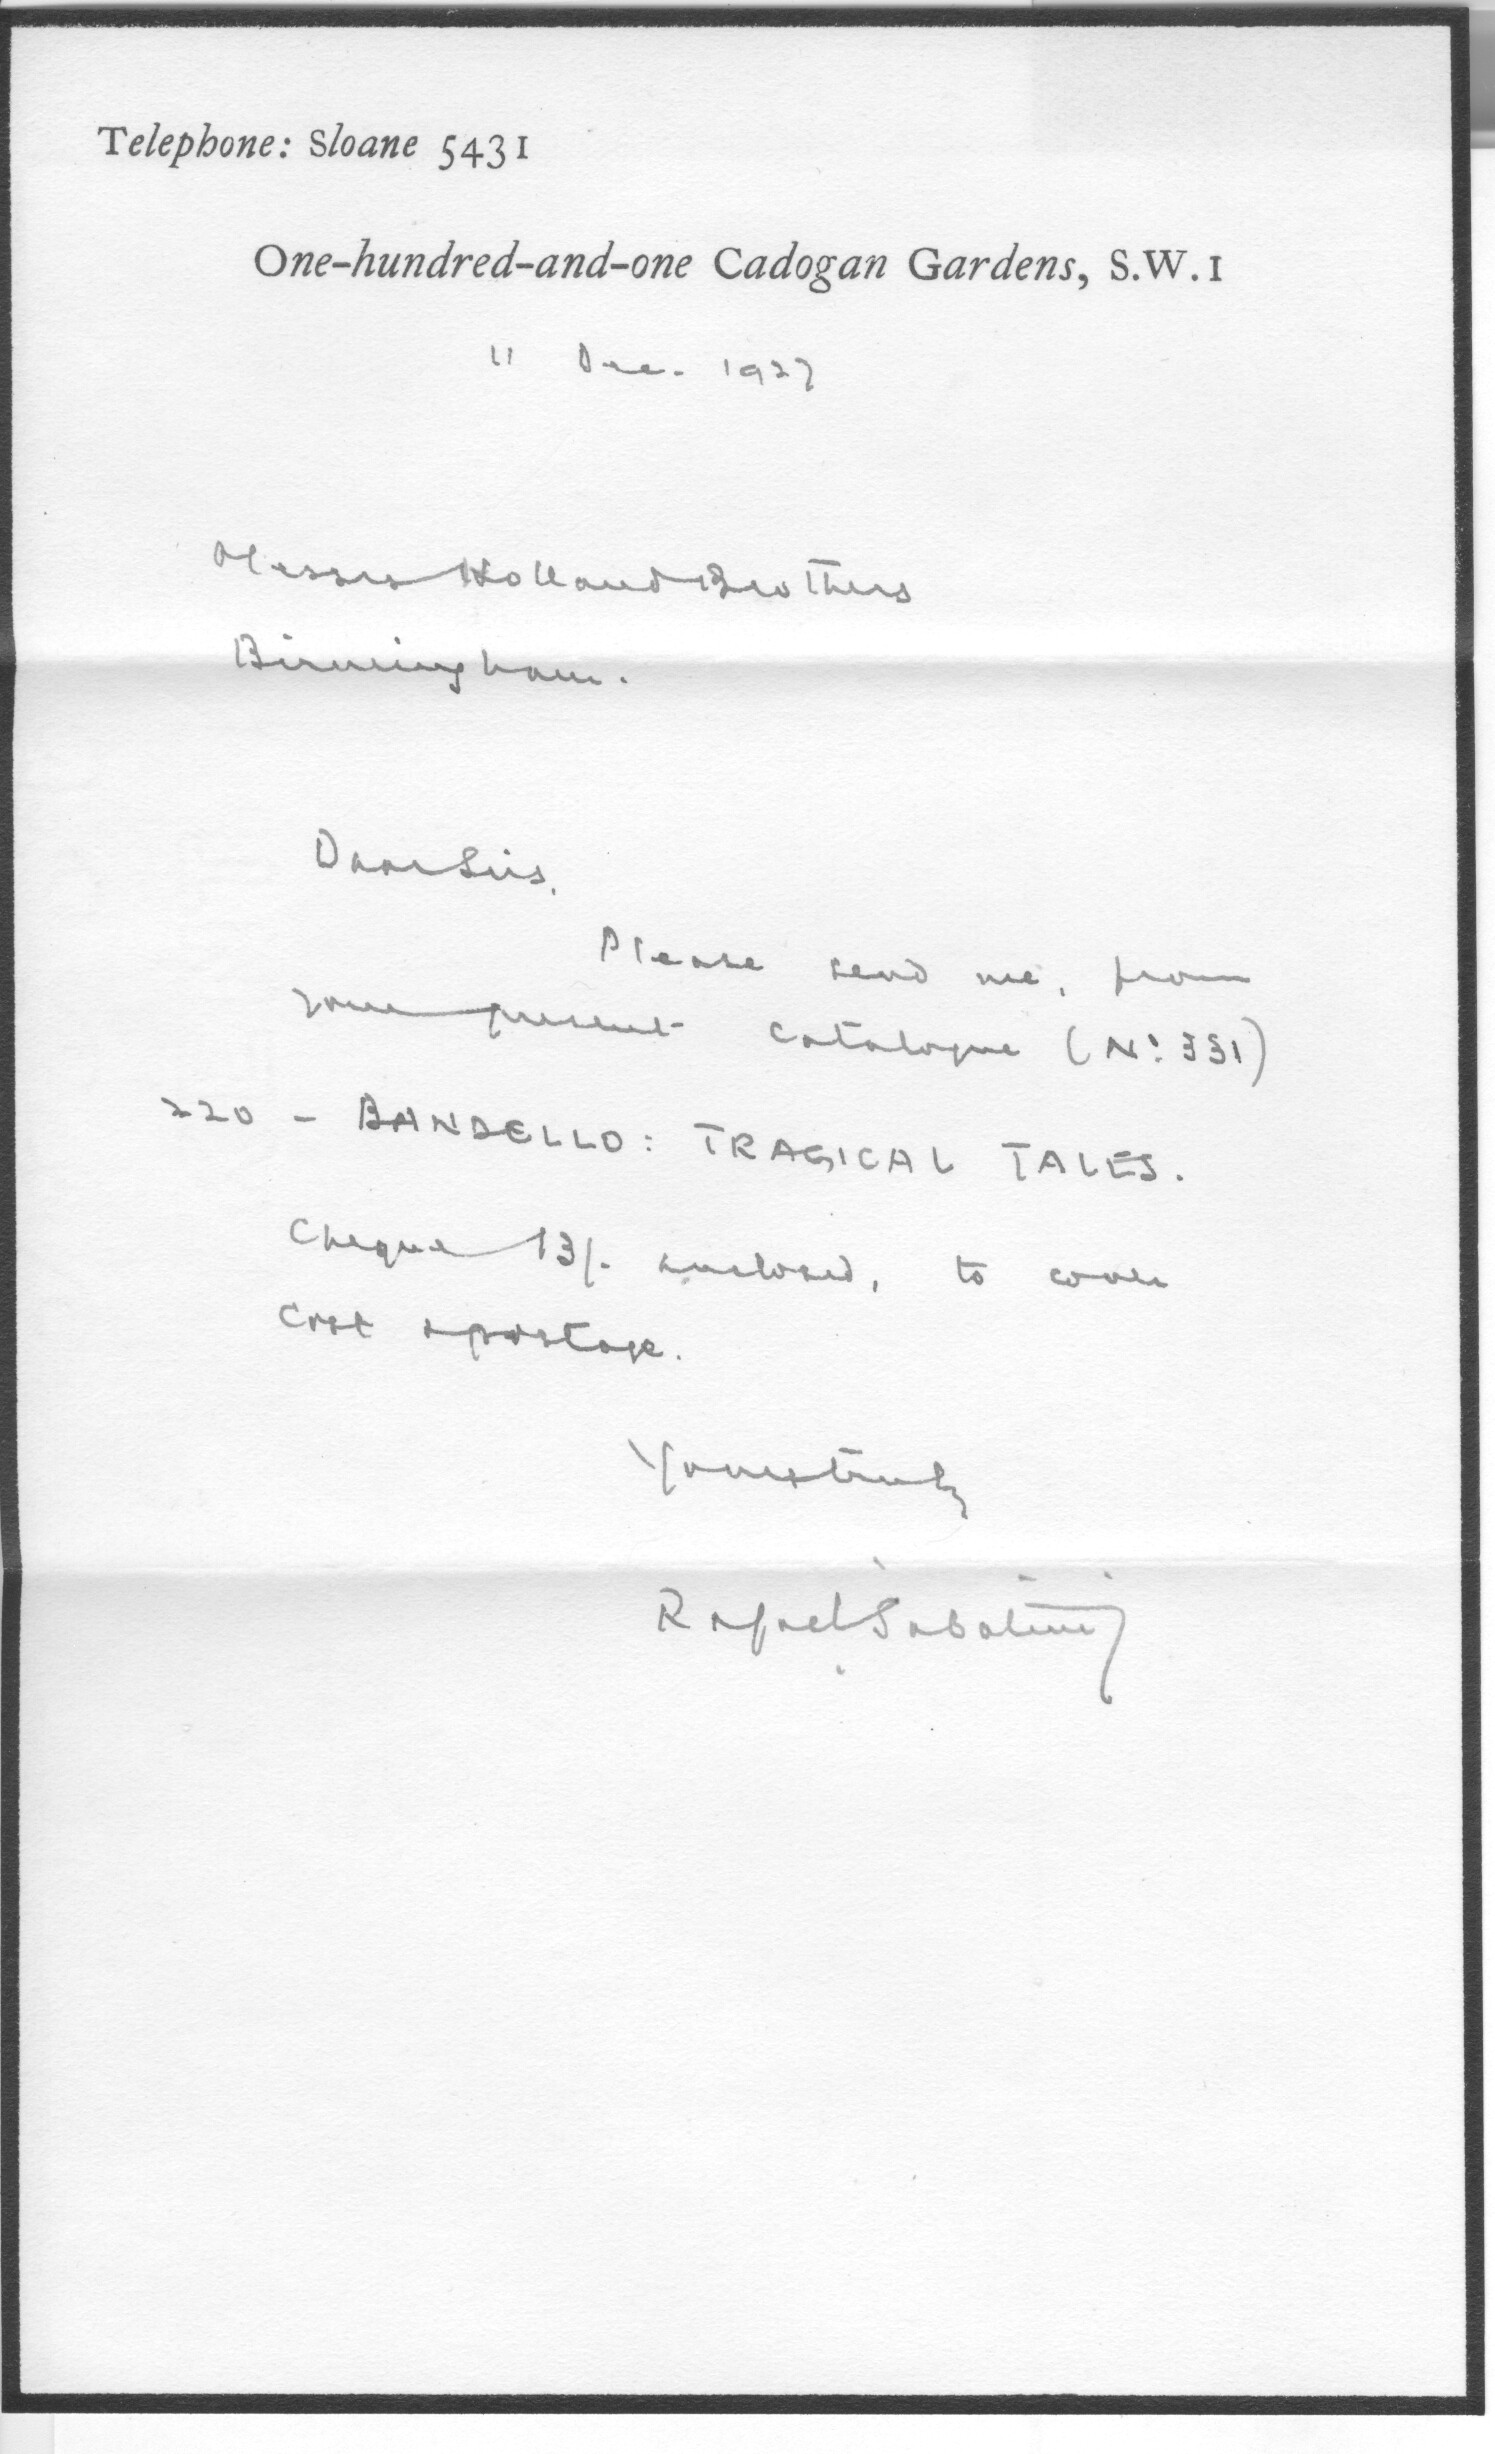 Telephone: Sloane 5431
One-hundred-and-one Cadogan Gardens, S.W.1
11 Dec. 1927
Messrs Holland Brothers
Birmingham.
Dear Sirs,
Please send me, from
your present catalogue (No. 331)
220 - BANDELLO: TRAGICAL TALES.
Cheque 13/- enclosed, to cover
cost & postage.
Yours truly
Rafael Sabatini